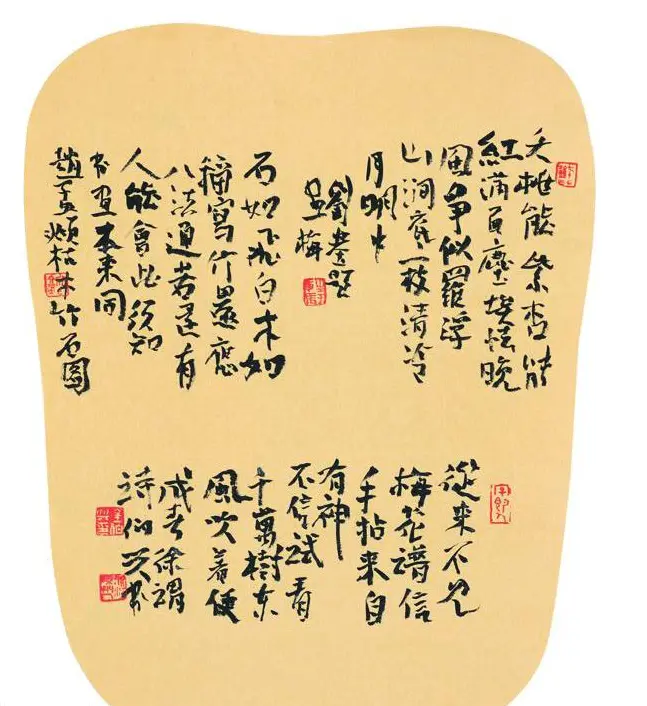 夭桃能紫杏能
紅滿面塵埃怯晚
風爭似羅浮
山澗底一枝清冷
月明中
劉題
墨梅
石如飛白木如
籀寫竹還應
八法通若還有
人能會此須知
書畫本來同
趙孟頫枯木竹石圖
從來不見
梅花譜信
手拈來自
有神
不信試看
千萬樹東
風吹着便
成春徐渭
詩